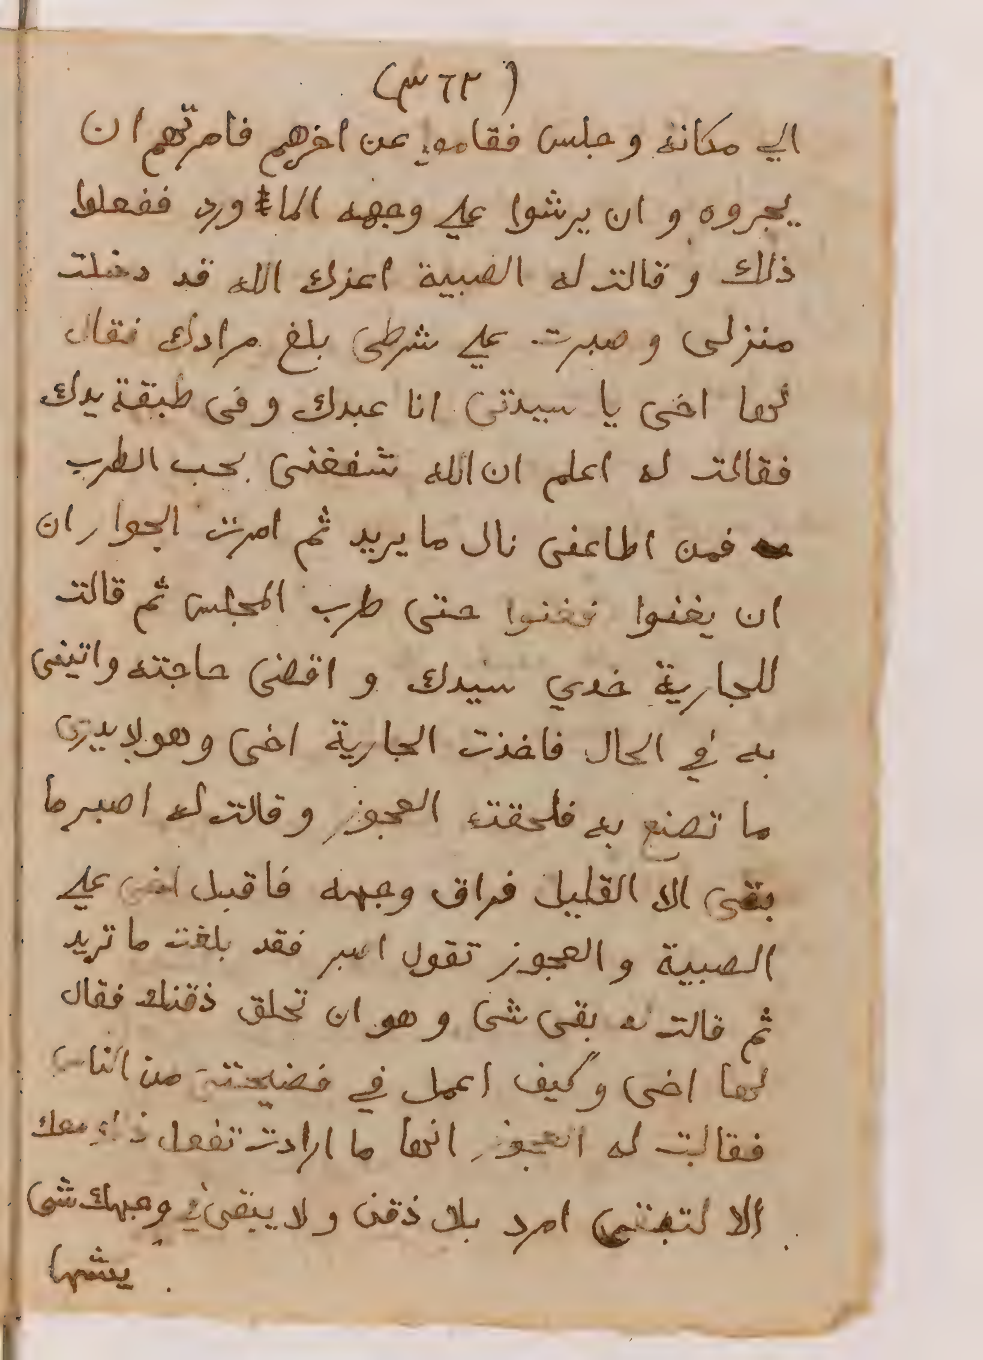 (٣٦٢)
الي مكانه و جلس فقاموا عن اخرهم فامرتهم ان
يجروه و ان يرشوا علي وجهه الماء ورد ففعلوا
ذلك و قالت له الصبية اعزك الله قد دخلت
منزلى و صبرت علي شرطى بلغ مرادك فقال
لها اخى يا سيدتى انا عبدك و فى طبقة يدك
فقالت له اعلم ان الله شغفنى بحب الطرب
فمن اطاعنى نال ما يريد ثم امرت الجوار ان
ان يغنوا فغنوا حتى طرب المجلس ثم قالت
للجارية خدي سيدك و اقضى حاجته واتينى
به في الحال فاخذت الجارية اخى وهو لا يدرى
ما تصنع به فلحقته العجوز و قالت له اصبر ما
بقى الا القليل فراق وجهه فاقبل اخى علي
الصبية و العجوز تقول اصبر فقد بلغت ما تريد
ثم قالت له بقى شى و هو ان تحلق ذقنك فقال
لها اخى و كيف اعمل في فضيحتى من الناس
فقالت له العجوز انها ما ارادت تفعل ذلك معك
الا لتبقى امرد بلا ذقن و لا يبقى في وجهك شى
يشها